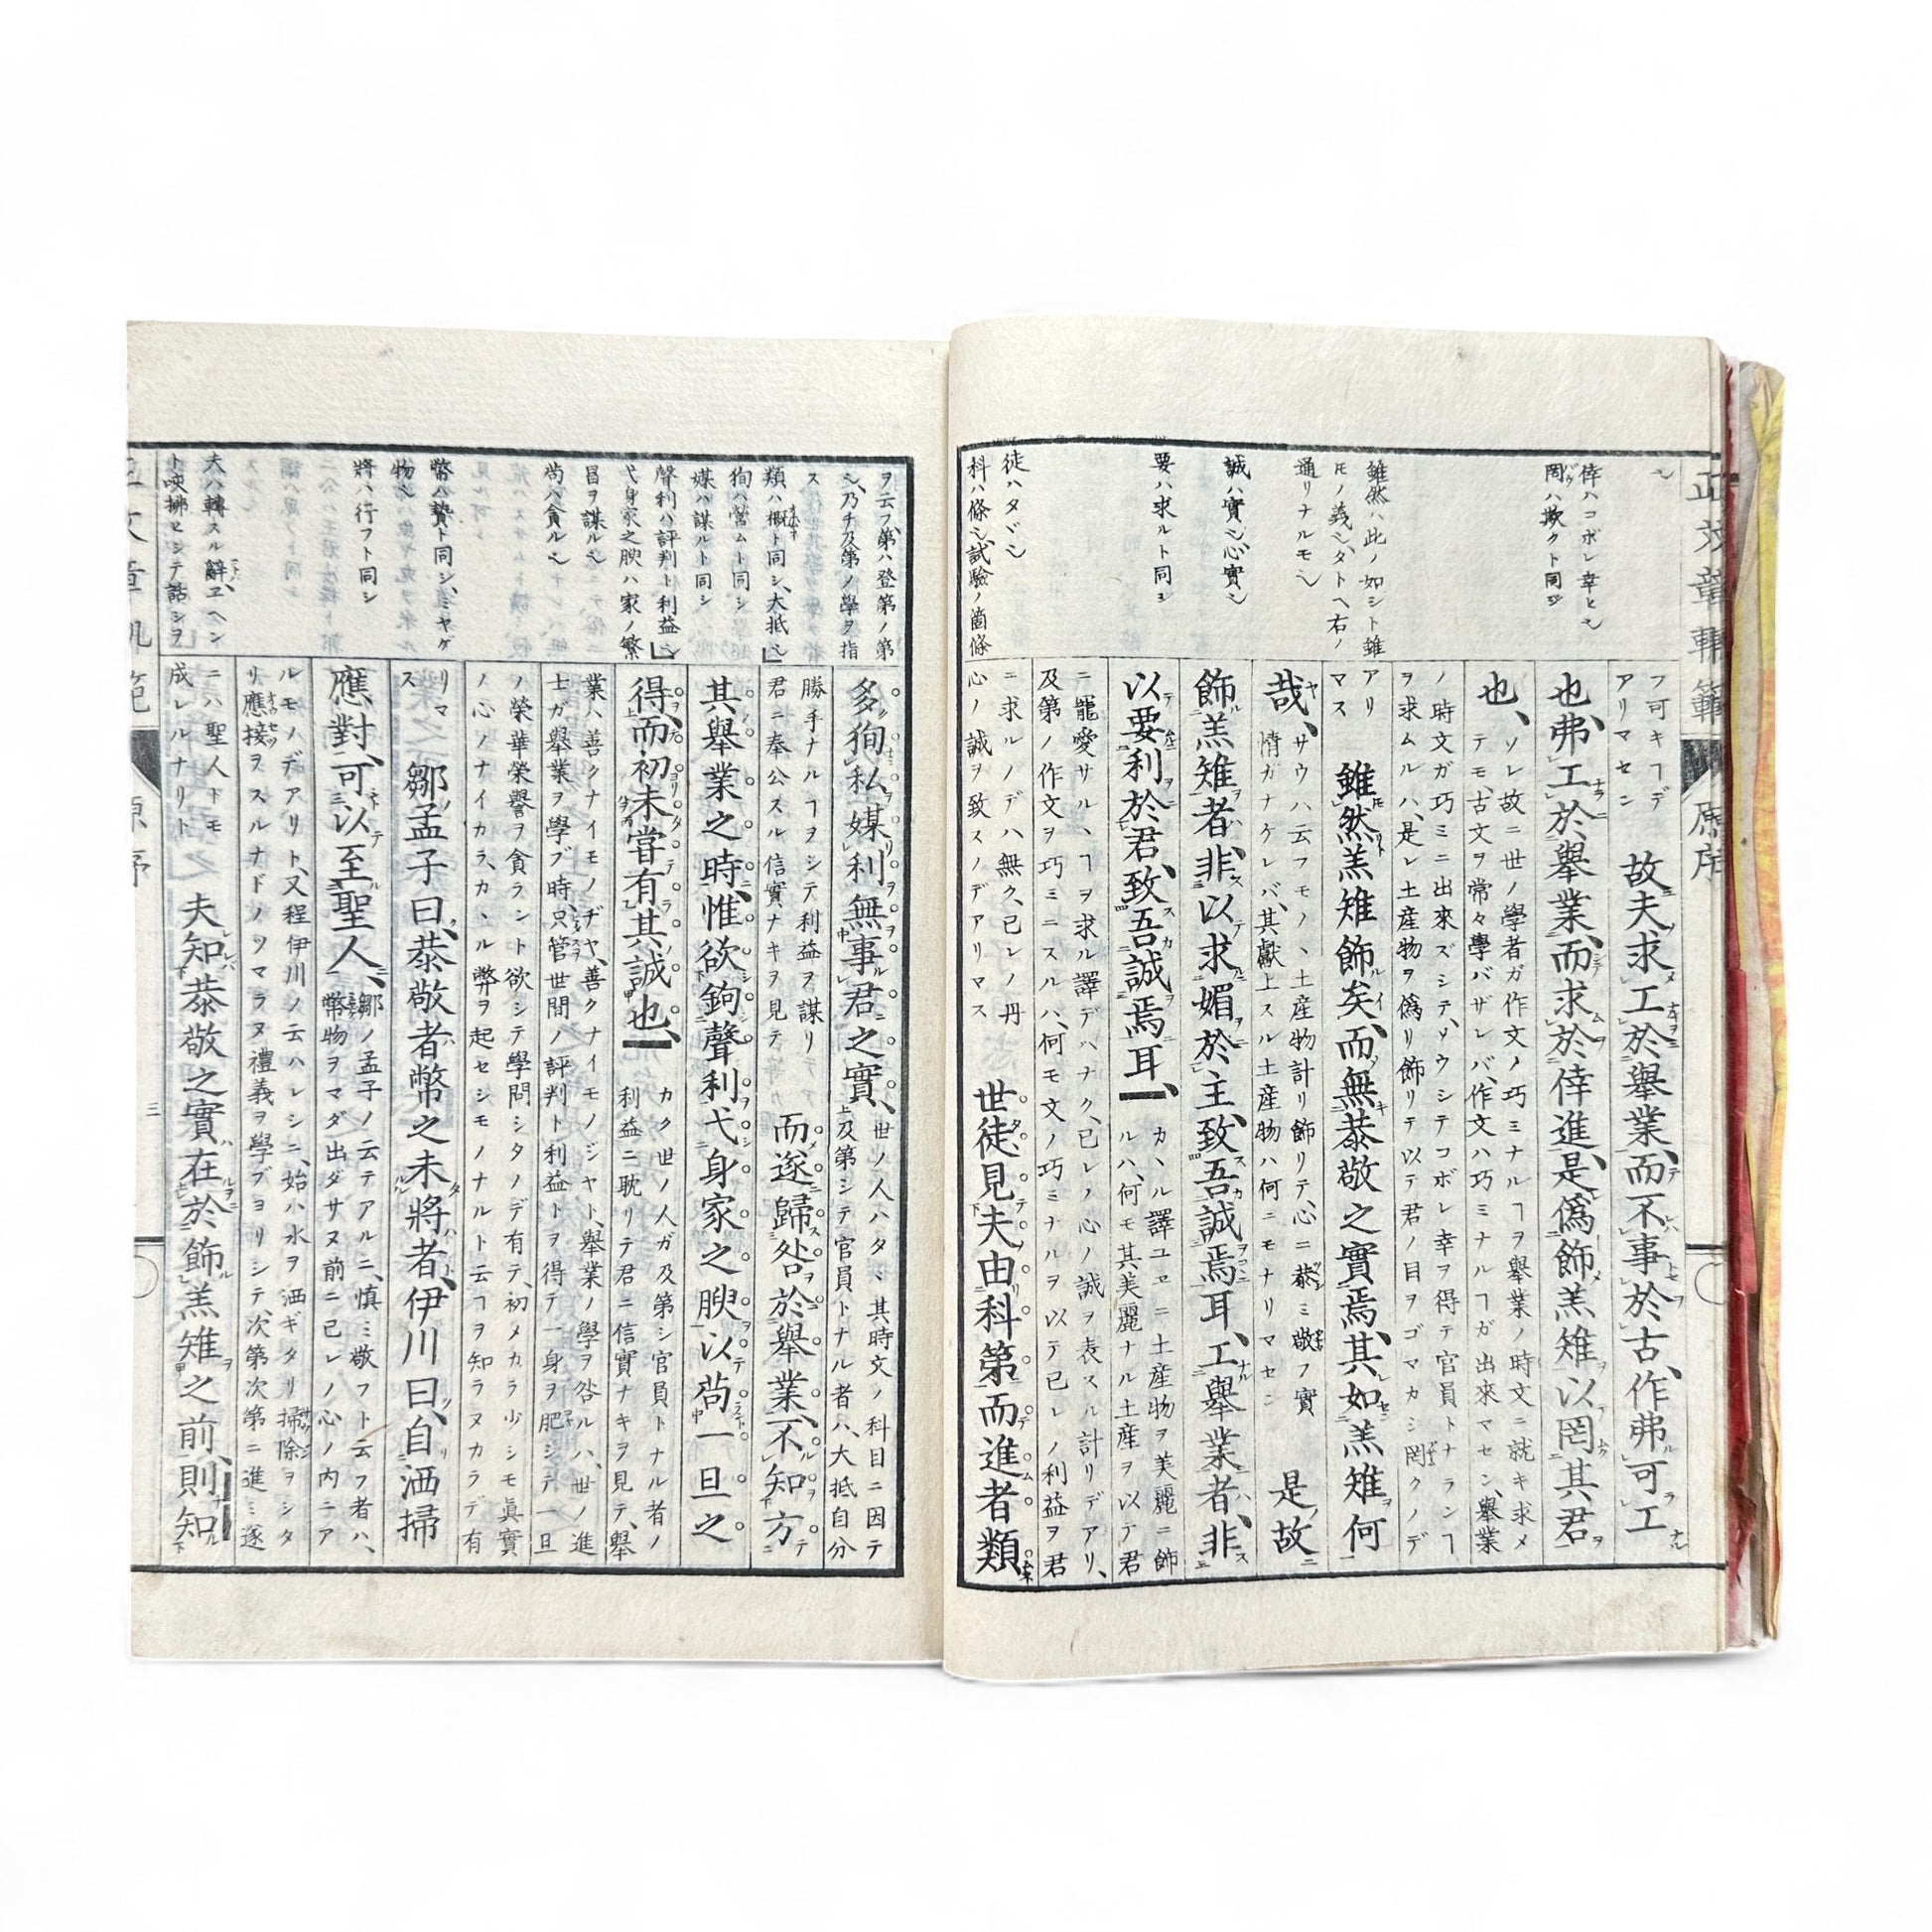 正文章軌範
原序
倖ハコボレ幸ヒ也
罔ハ欺クト同ジ
雖然ハ此ノ如シト雖
モノ義也、タトヘ右ノ
通リナルモ也
誠ハ實也、心實也
要ハ求ルト同ジ
徒ハタヾ也
科ハ條也、試驗ノ箇條
フ可キヿデ
アリマセン
故夫求工於舉業、而不事於古、作弗可工
也、弗工於舉業、而求於倖進、是僞飾羔雉以罔其君
也、
ソレ故ニ世ノ學者ガ作文ノ巧ミナルヿヲ舉業ノ時文ニ就キ求メ
テモ、古文ヲ常々學バザレバ、作文ハ巧ミナルヿガ出來マセン、舉業
ノ時文ガ巧ミニ出來ズシテ、ソウシテコボレ幸ヲ得テ官員トナランヿ
ヲ求ムルハ、是レ土産物ヲ僞リ飾リテ以テ君ノ目ヲゴマカシ罔クノデ
アリ
マス
雖然羔雉飾矣、而無恭敬之實焉、其如羔雉何
哉、
サウハ云フモノヽ土産物計リ飾リテ、心ニ恭ミ敬フ實
情ガナケレバ、其獻上スル土産物ハ何ニモナリマセン
是故
飾羔雉者、非以求媚於主、致吾誠焉耳、工舉業者、非
以要利於君、致吾誠焉耳、
カヽル譯ユエニ土産物ヲ美麗ニ飾
ルハ、何モ其美麗ナル土産ヲ以テ君
ニ寵愛サルヽヿヲ求ル譯デハナク、已レノ心ノ誠ヲ表スル計リデアリ、
及第ノ作文ヲ巧ミニスルハ、何モ文ノ巧ミナルヲ以テ已レノ利益ヲ君
ニ求ルノデハ無ク、已レノ丹
心ノ誠ヲ致スノデアリマス
世徒見夫由科第而進者類
ヲ云フ、第ハ登第ノ第
也、乃チ及第ノ學ヲ指
ス
類ハ概ト同シ、大抵也
徇ハ營ムト同シ
媒ハ謀ルト同シ
聲利ハ評判ト利益也
弋身家之腴ハ家ノ繁
昌ヲ謀ル也
苟ハ貪ル也
幣ハ贄ト同シ、ミヤゲ
物也
將ハ行フト同シ
夫ハ轉スル辭、エヘン
ト咳拂ヒシテ話シヲ
多徇私媒利無事君之實、
世ノ人ハタヾ其時文ノ科目ニ因テ
及第シテ官員トナル者ハ、大抵自分
勝手ナルヿヲシテ利益ヲ謀リ
君ニ奉公スル信實ナキヲ見テ
而遂歸咎於舉業、不知方
其舉業之時、惟欲鉤聲利弋身家之腴以苟一旦之
得、而初未甞有其誠也、
カク世ノ人ガ及第シ官員トナル者ノ
利益ニ耽リテ君ニ信實ナキヲ見テ、舉
業ハ善クナイモノヂヤ、善クナイモノジヤト、舉業ノ學ヲ咎ルハ、世ノ進
士ガ舉業ヲ學ブ時只管世間ノ評判ト利益トヲ得テ一身ヲ肥シテ一旦
ノ榮華榮譽ヲ貪ラント欲シテ學問シタノデ有テ、初メカラ少シモ眞實
ノ心ノナイカラ、カヽル弊ヲ起セシモノナルト云ヿヲ知ラヌカラデ有
リマ
ス
鄒孟子曰、恭敬者幣之未將者、伊川曰、自洒掃
應對、可以至聖人、
鄒ノ孟子ノ云テアルニ、慎ミ敬フト云フ者ハ、
幣物ヲマダ出ダサヌ前ニ已レノ心ノ内ニア
ルモノデアリト、又程伊川ノ云ハレシニ、始ハ水ヲ洒ギタリ掃除ヲシタ
リ應接ヲスルナドノツマラヌ禮義ヲ學ブヨリシテ、次第次第ニ進ミ遂
ニハ聖人トモ
成レルナリト
夫知恭敬之實在於飾羔雉之前、則知
三